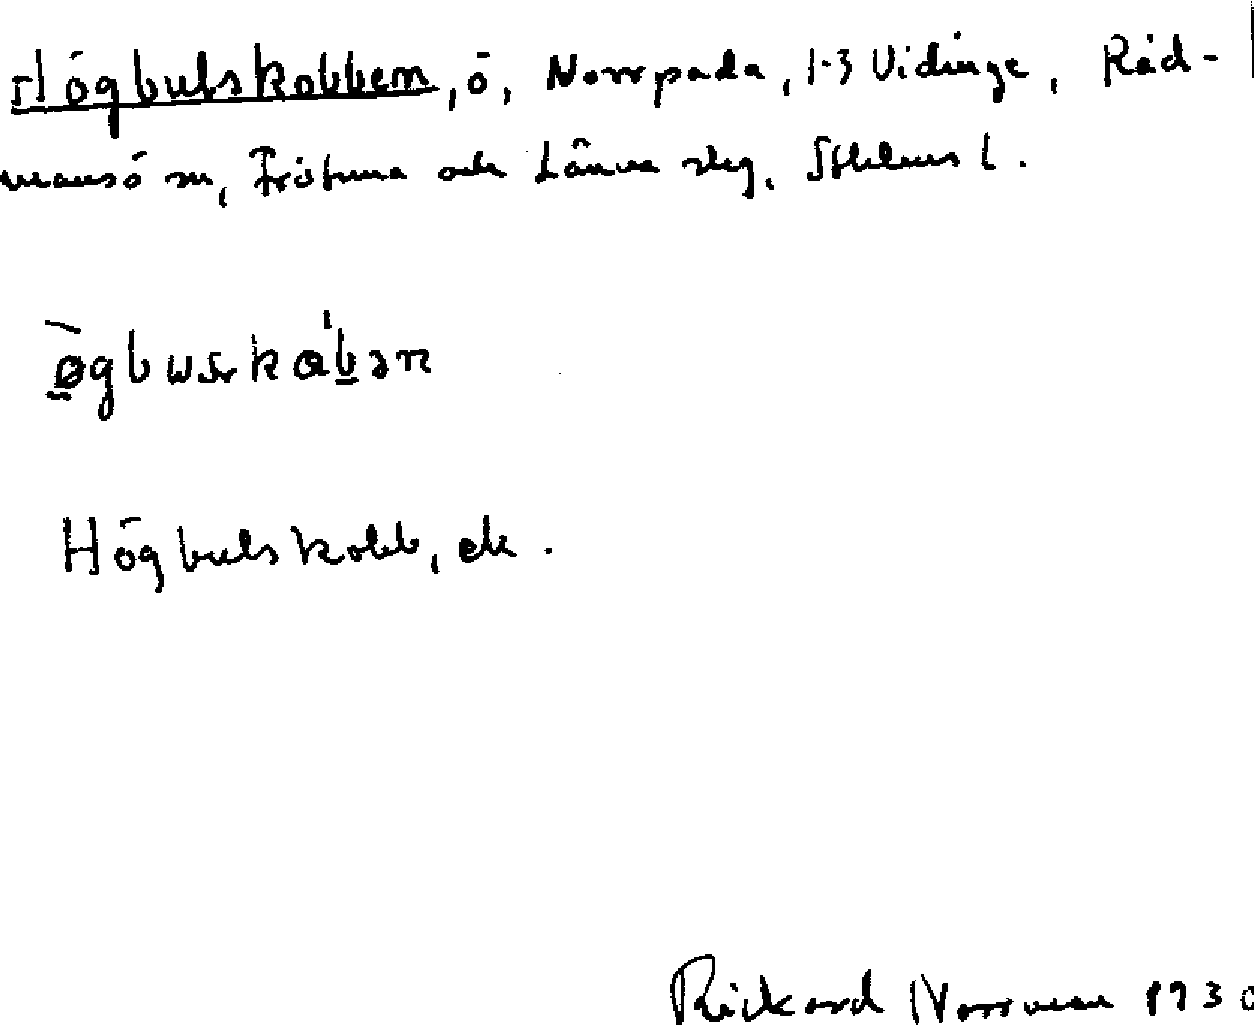 Högbulskobben, ö, Norrpada, 1-3 Vidinge, Råd-
mansö sn, Frötuna och Länna skg, Sthlms l.
øgbuskabən
Högbulskobb, ek.
Rickard Norrman 1930